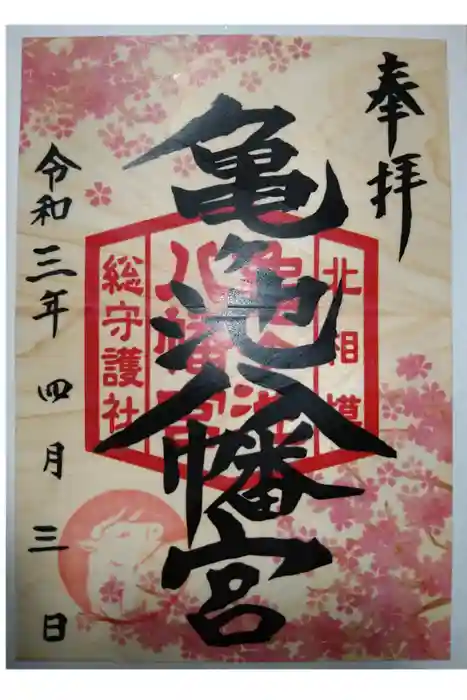 奉拝
亀池八幡宮
北相模
亀ヶ池
八幡宮
総守護社
令和三年四月三日